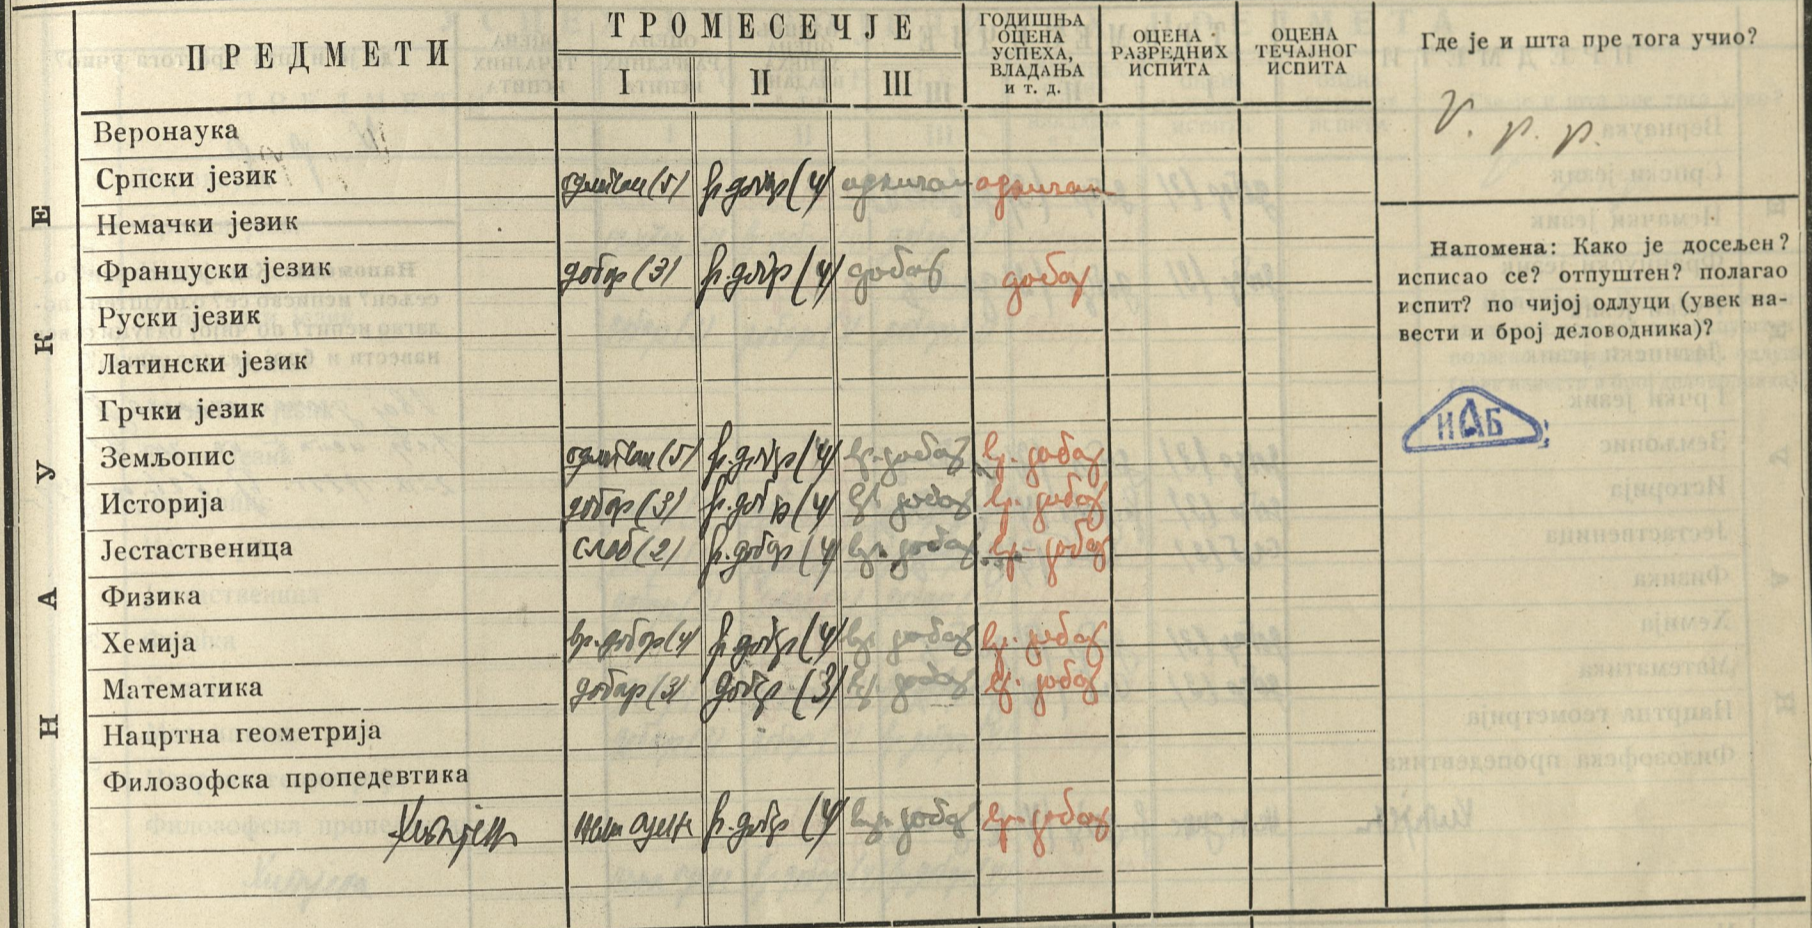 ПРЕДМЕТИ
ТРОМЕСЕЧЈЕ
I II III
ГОДИШЊА ОЦЕНА УСПЕХА, ВЛАДАЊА и т. д.
ОЦЕНА РАЗРЕДНИХ ИСПИТА
ОЦЕНА ТЕЧАЈНОГ ИСПИТА
Где је и шта пре тога учио?
V. р. р.
НАУКЕ И ЗНАЊЕ
Веронаука
Српски језик одличан (5) вр. добар (4) одличан одличан
Немачки језик
Француски језик добар (3) вр. добар (4) добар добар
Руски језик
Латински језик
Грчки језик
Земљопис одличан (5) вр. добар (4) вр. добар вр. добар
Историја добар (3) вр. добар (4) вр. добар вр. добар
Јестаственица слаб (2) вр. добар (4) вр. добар вр. добар
Физика
Хемија вр. добар (4) вр. добар (4) вр. добар вр. добар
Математика добар (3) добар (3) вр. добар вр. добар
Нацртна геометрија
Филозофска пропедевтика
Хигијена неоцењен вр. добар (4) вр. добар вр. добар
Напомена: Како је досељен?
исписао се? отпуштен? полагао
испит? по чијој одлуци (увек на-
вести и број деловодника)?
ИАБ